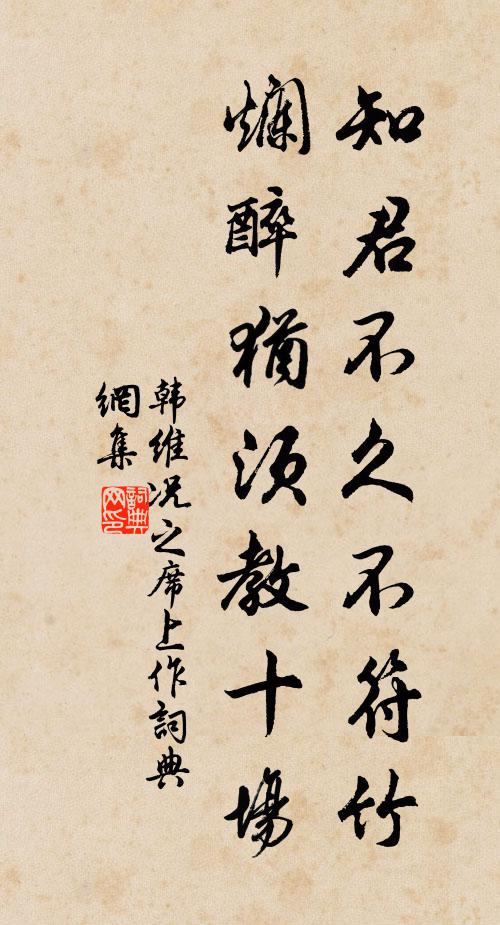 知君不久不符竹
爛醉猶須教十場
韩維况之席上作詞典
網集
詞典网印